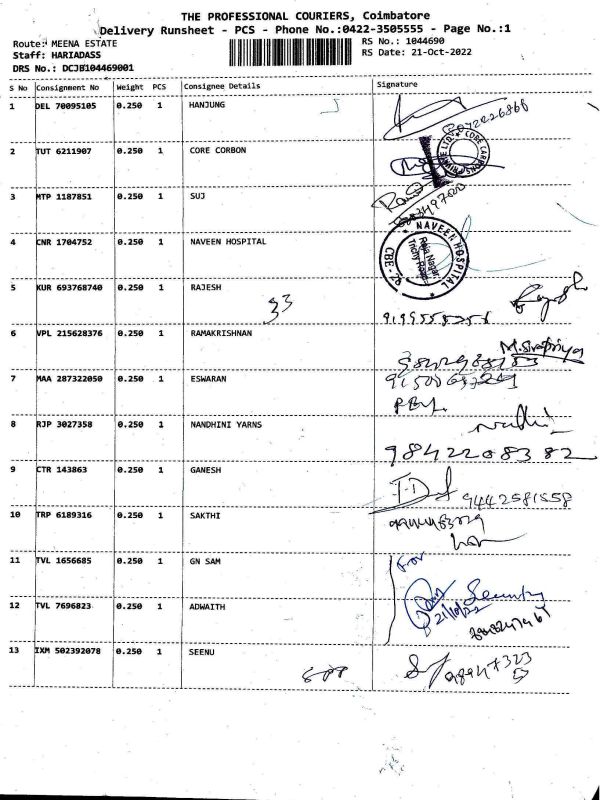 THE PROFESSIONAL COURIERS, Coimbatore
Delivery Runsheet - PCS - Phone No.:0422-3505555 - Page No.:1
Route: MEENA ESTATE
Staff: HARIADASS
DRS No.: DCJB104469001
RS No.: 1044690
RS Date: 21-Oct-2022
S No Consignment No Weight PCS Consignee Details Signature
1 DEL 70095105 0.250 1 HANJUNG
2 TUT 6211907 0.250 1 CORE CORBON
CORE CARBONS PRIVATE LTD
3 MTP 1187851 0.250 1 SUJ
4 CNR 1704752 0.250 1 NAVEEN HOSPITAL
NAVEEN HOSPITAL
Raja Nagar,
Trichy Road
CBE - 28
5 KUR 693768740 0.250 1 RAJESH
33
6 VPL 215628376 0.250 1 RAMAKRISHNAN
7 MAA 287322050 0.250 1 ESWARAN
8 RJP 3027358 0.250 1 NANDHINI YARNS
9842208382
9 CTR 143863 0.250 1 GANESH
9442581558
10 TRP 6189316 0.250 1 SAKTHI
11 TVL 1656685 0.250 1 GN SAM
For
12 TVL 7696823 0.250 1 ADWAITH
Security
21/10/22
13 IXM 502392078 0.250 1 SEENU